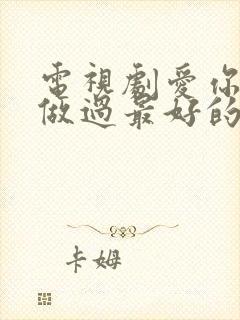 電視劇愛你
做過最好的
卡姆